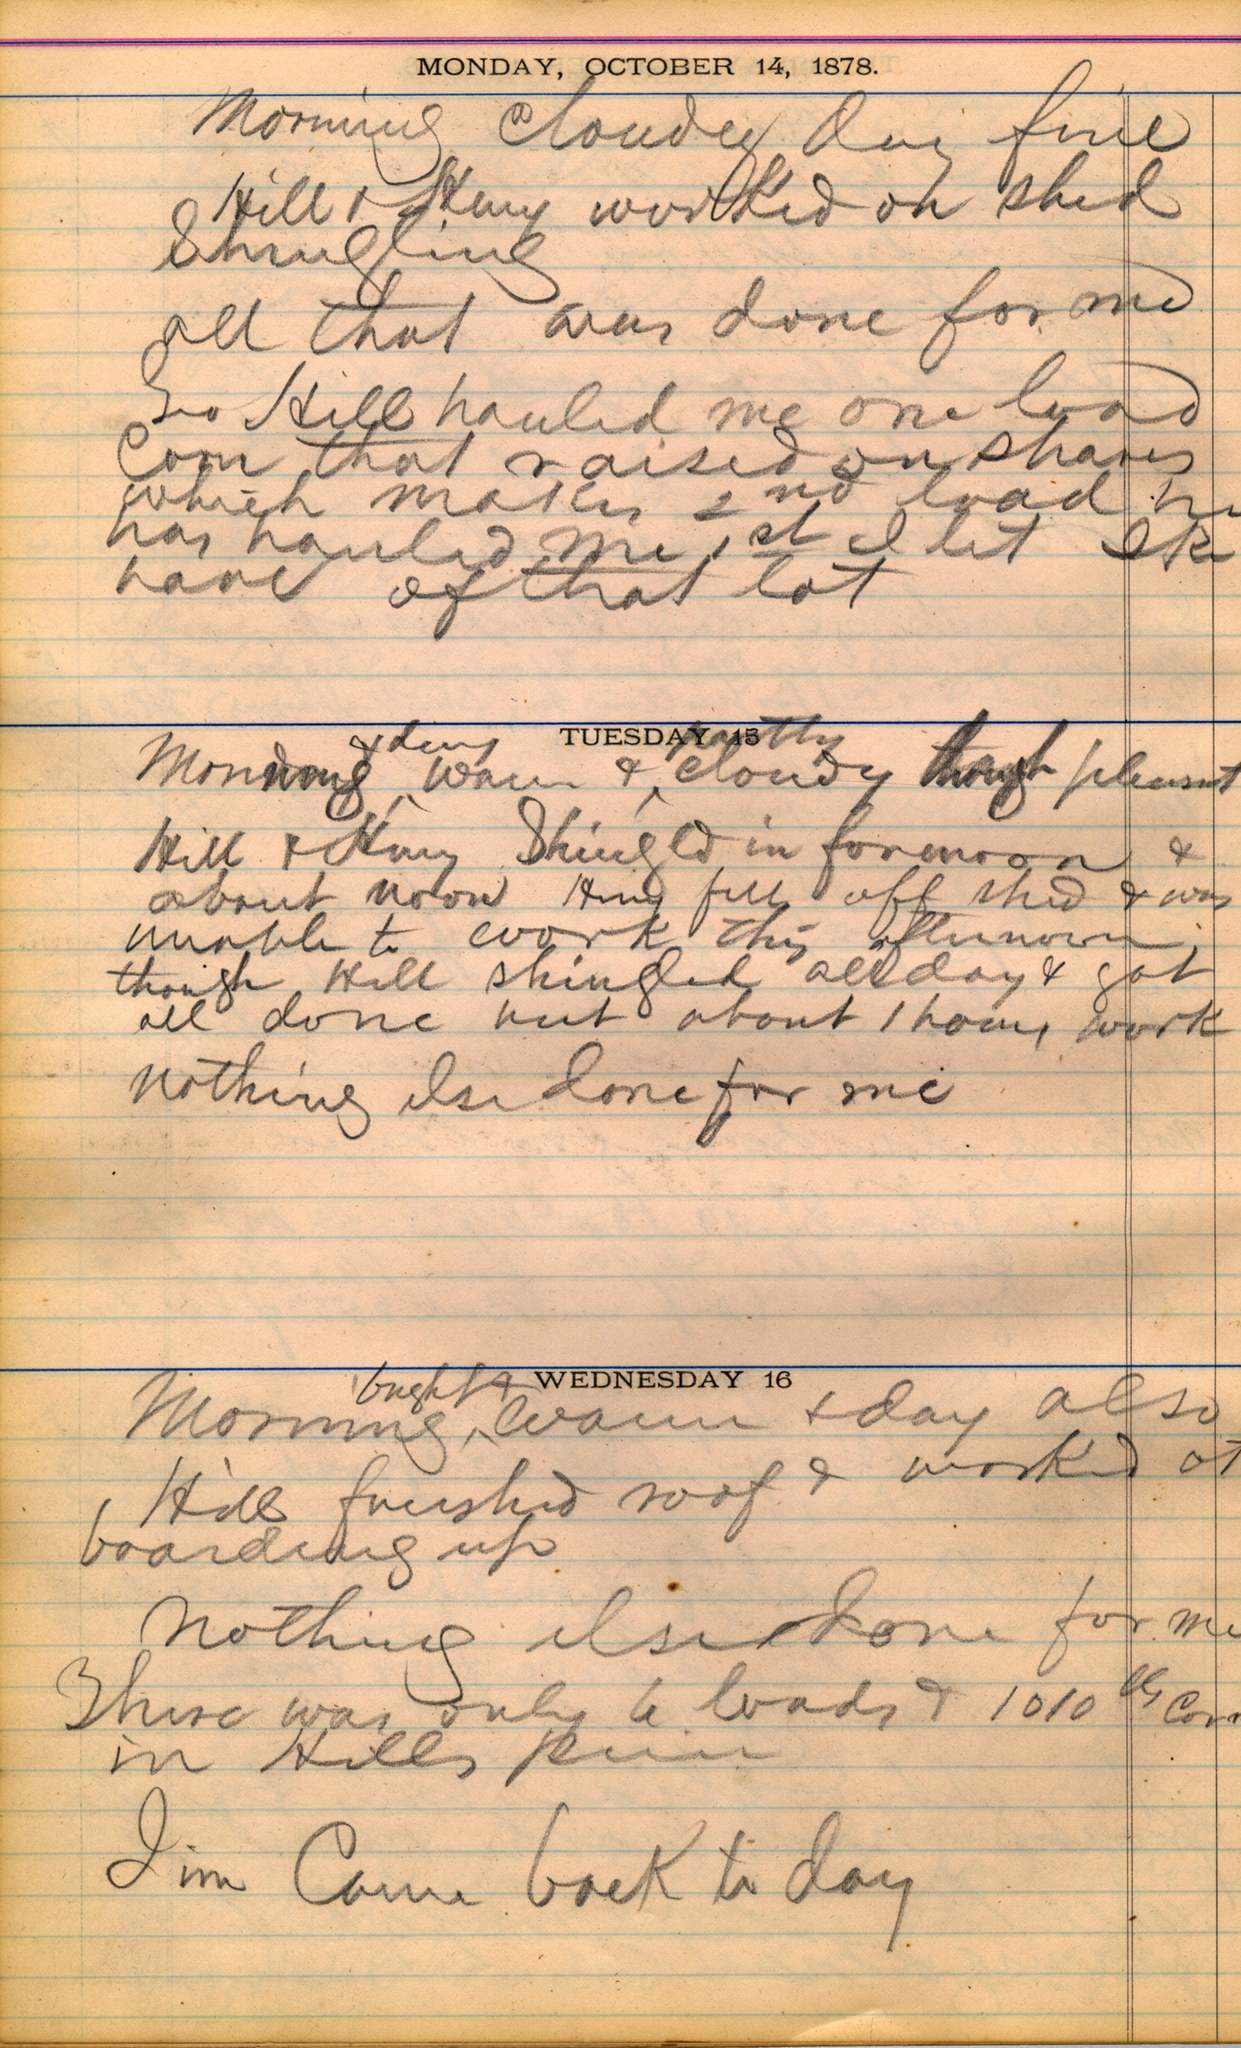 MONDAY, OCTOBER 14, 1878.
Morning Cloudey Day fine
Hill & Hury worked on shed
Shingling
all that was done for me
Geo Hill hauled me one load
Corn that raised on shares
which makes 2nd load he
has hauled me, 1st I let Ike
have of that lot
TUESDAY 15
& day partly
Morning, warm & cloudy though pleasant
Hill & Hury Shingled in forenoon &
about noon Hury fell off shed & was
unable to work this afternoon,
though Hill shingled all day & got
all done but about 1 hours work
Nothing else done for me
WEDNESDAY 16
bright &
Morning, warm & day also
Hill finished roof & worked at
boarding up
Nothing else done for me
There was only 6 loads & 1010 lbs Corn
in Hills
Jim Came back to day